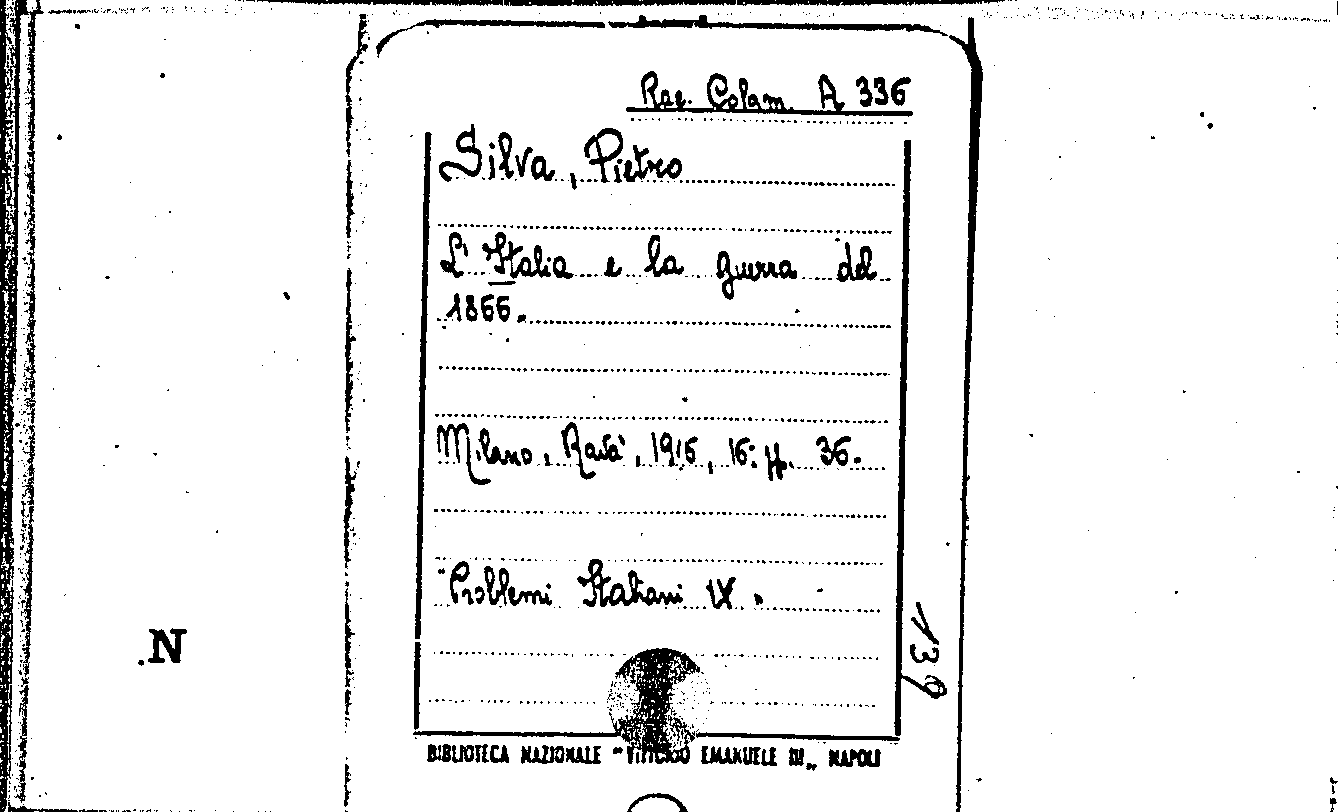 Rac. Colam. A 336
Silva, Pietro
L'Italia e la guerra del
1866.
Milano, Ravà, 1916, 16° pp. 36.
"Problemi Italiani IX"
139
.N
BIBLIOTECA NAZIONALE "VITTORIO EMANUELE III" NAPOLI